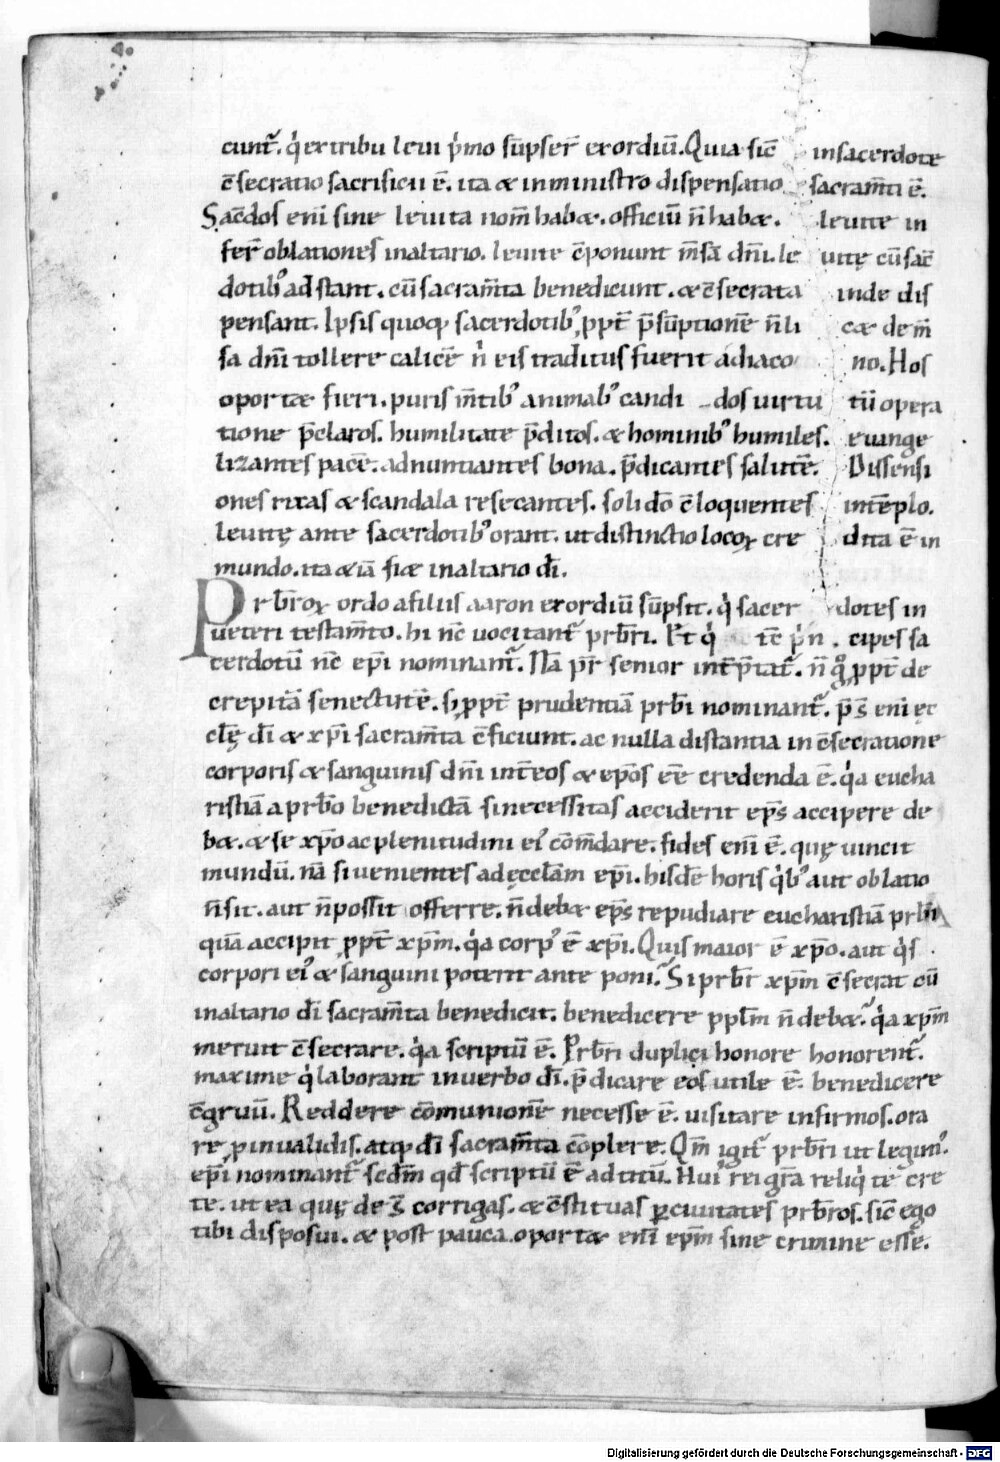 cunt᷑. q̇ ex tribu leui p̍mo sūpser̄ exordiū. Quia sic̄ in sacerdote
c̄secratio sacrificii ē. ita & in ministro dispensatio sacram̄ti ē.
Sac̄dos eni᷑ sine leuita nom̄ habæ. officiū n̄ habæ. leuite in
fer̄ oblationes in altario. leuite c̄ponunt m̄sā dn̄i. le uitę cū sac̄
dotib᷒ ad stant. cū sacram̄ta benedicunt. & c̄secrata inde dis
pensant. Ipsis quoq; sacerdotib᷒ ꝓpt̄ p̄sūptionē n̄ li cæ de m̄
sa dn̄i tollere calicē n̍ eis traditus fuerit a diaco no. Hos
oportæ fieri. puris m̄tib᷒ animab᷒ candi dos uirtu tū opera
tione p̄claros. humilitate p̄ditos. & hominib᷒ humiles. euange
lizantes pacē. adnuntiantes bona. p̄dicantes salutē. Dissensi
ones rixas & scandala resecantes. soli dō c̄loquentes in tēplo.
leuitę ante sacerdotib᷒ orant. ut distinctio locoꝝ cre dita ē in
mundo. ita & iā fiæ in altario dī.
Prb̄roꝝ ordo a filiis aaron exordiū sūpsit. q̇ sacer dotes in
ueteri testam̄to. hi nc̄ uocitant᷑ prb̄ri. Et q̇ te᷑ p̍n cipes sa
cerdotū nc̄ ep̄i nominant᷑. Nā pr̄ senior int̄p̄tat᷑. n̄ g̊ ꝓpt̄ de
crepitā senectutē. s; ꝓpt̄ prudentiā prb̄i nominant᷑. p̄s̄ eni᷑ ęc
cl̄ę dī & xp̄i sacram̄ta c̄ficiunt. ac nulla distantia in c̄secratione
corporis & sanguinis dn̄i int̄ eos & ep̄os eē credenda ē. q̇a eucha
ristiā a prb̄o benedictā si necessitas acciderit ep̄s accipere de
bæ. & se xp̄o ac plenitudini ei᷒ cōm̄dare. fides eni᷑ ē. quę uincit
mundū. nā si uenientes ad ęccl̄am ep̄i. hisdē horis q̇b᷒ aut oblatio
n̄ sit. aut n̄ possit offerre. n̄ debæ ep̄s repudiare eucharistiā prb̄i
quā accipit ꝓpt̄ xp̄m. q̇a corp᷒ ē xp̄i. Quis maior ē xp̄o. aut q̇s
corpori ei᷒ & sanguini poterit ante poni. Si prb̄r xp̄m c̄secrat cū
in altario dī sacram̄ta benedicit. benedicere ppl̄m n̄ debæ. q̇a xp̄m
meruit c̄secrare. q̇a scriptū ē. Prb̄ri duplici honore honorent᷑.
maxime q̇ laborant in uerbo dī. p̄dicare eos utile ē. benedicere
c̄gruū. Reddere cōmunionē necesse ē. uisitare infirmos. ora
re ꝓ inualidis. atq; dī sacram̄ta cōplere. Qm̄ igit᷑ prb̄ri ut legim᷒.
ep̄i nominant᷑ scdm̄ qd̄ scriptū ē ad titū. Hui᷒ rei gr̄a reliq̍ te cre
te. ut ea quę de s̄ corrigas. & c̄stituas ꝑ ciuitates prb̄ros. sic̄ ego
tibi disposui. & post pauca. oportæ eni᷑ ep̄m sine crimine esse.
Digitalisierung gefördert durch die Deutsche Forschungsgemeinschaft - DFG